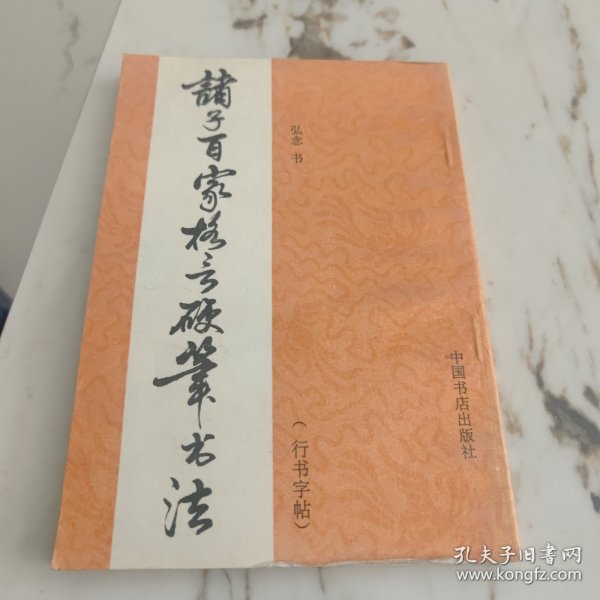 諸子百家格言硬筆书法
弘念 书
(行书字帖)
中国书店出版社
孔夫子旧书网
www.kongfz.com